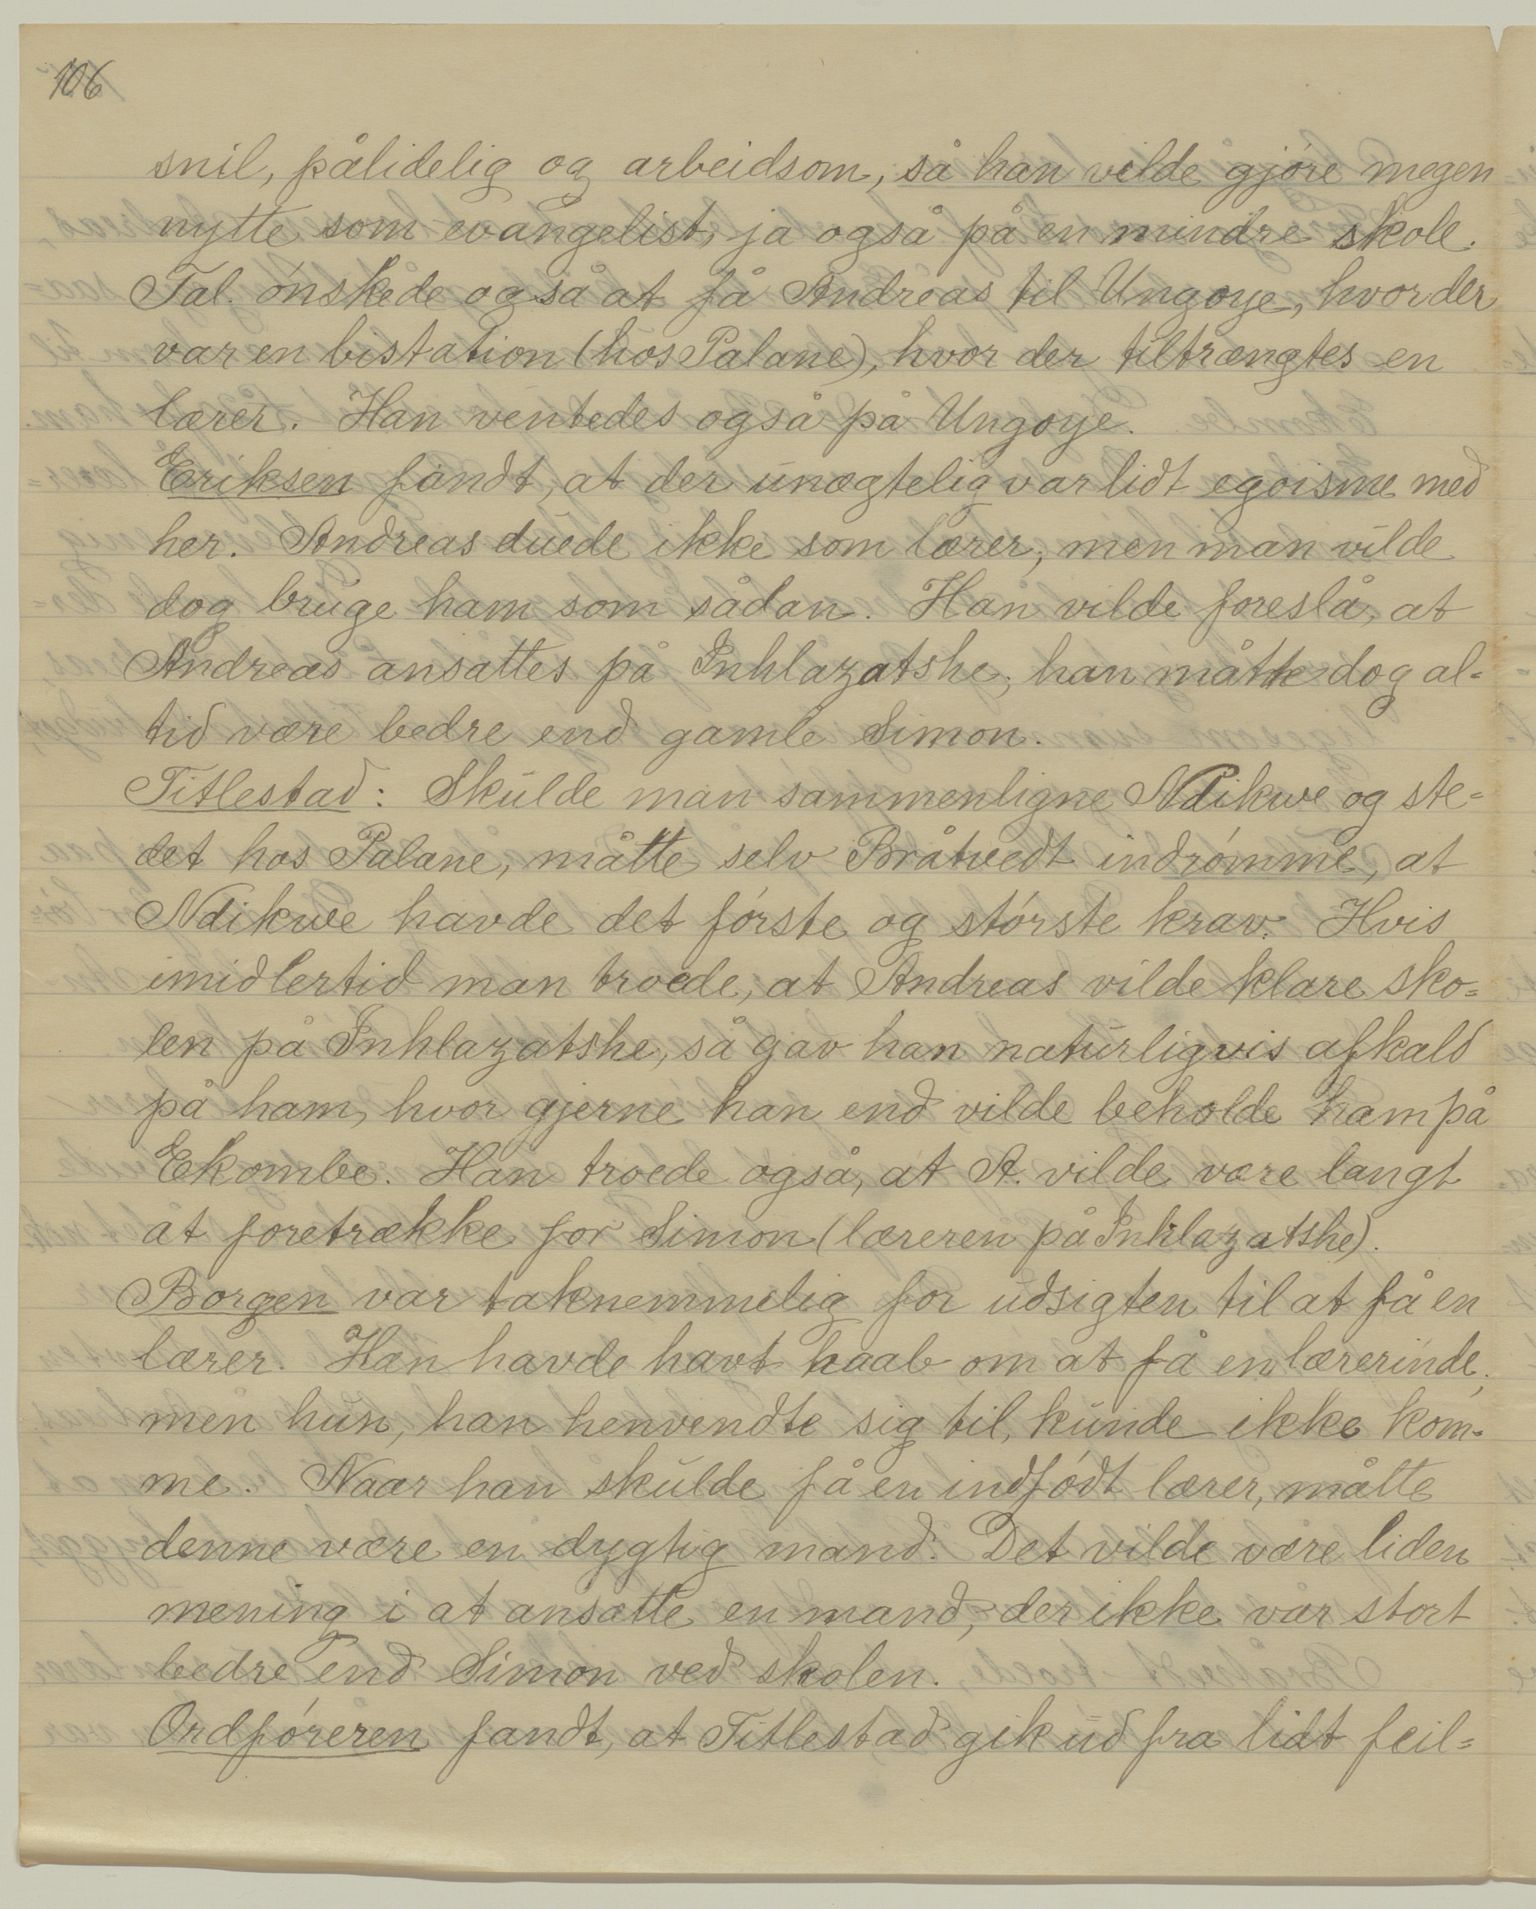 106
snil, pålidelig og arbeidsom, så han vilde gjøre megen
nytte som evangelist, ja også på en mindre skole.
Tal. ønskede også at få Andreas til Ungoye, hvor der
var en bistation (hos Palane), hvor der tiltrængtes en
lærer. Han ventedes også på Ungoye.
Eriksen fandt, at der unægtelig var lidt egoisme med
her. Andreas duede ikke som lærer, men man vilde
dog bruge ham som sådan. Han vilde foreslå, at
Andreas ansattes på Inhlazatshe; han måtte dog al-
tid være bedre end gamle Simon.
Titlestad: Skulde man sammenligne Ndikwe og ste-
det hos Palane, måtte selv Bråtvedt indrømme, at
Ndikwe havde det første og største krav. Hvis
imidlertid man troede, at Andreas vilde klare sko-
len på Inhlazatshe, så gav han naturligvis afkald
på ham, hvor gjerne han end vilde beholde ham på
Ekombe. Han troede også, at A. vilde være langt
at foretrække for Simon (læreren på Inhlazatshe).
Borgen var taknemmelig for udsigten til at få en
lærer. Han havde havt haab om at få en lærerinde,
men hun, han henvendte sig til, kunde ikke kom-
me. Naar han skulde få en indfødt lærer, måtte
denne være en dygtig mand. Det vilde være liden
mening i at ansætte en mand, der ikke var stort
bedre end Simon ved skolen.
Ordføreren fandt, at Titlestad gik ud fra lidt feil-